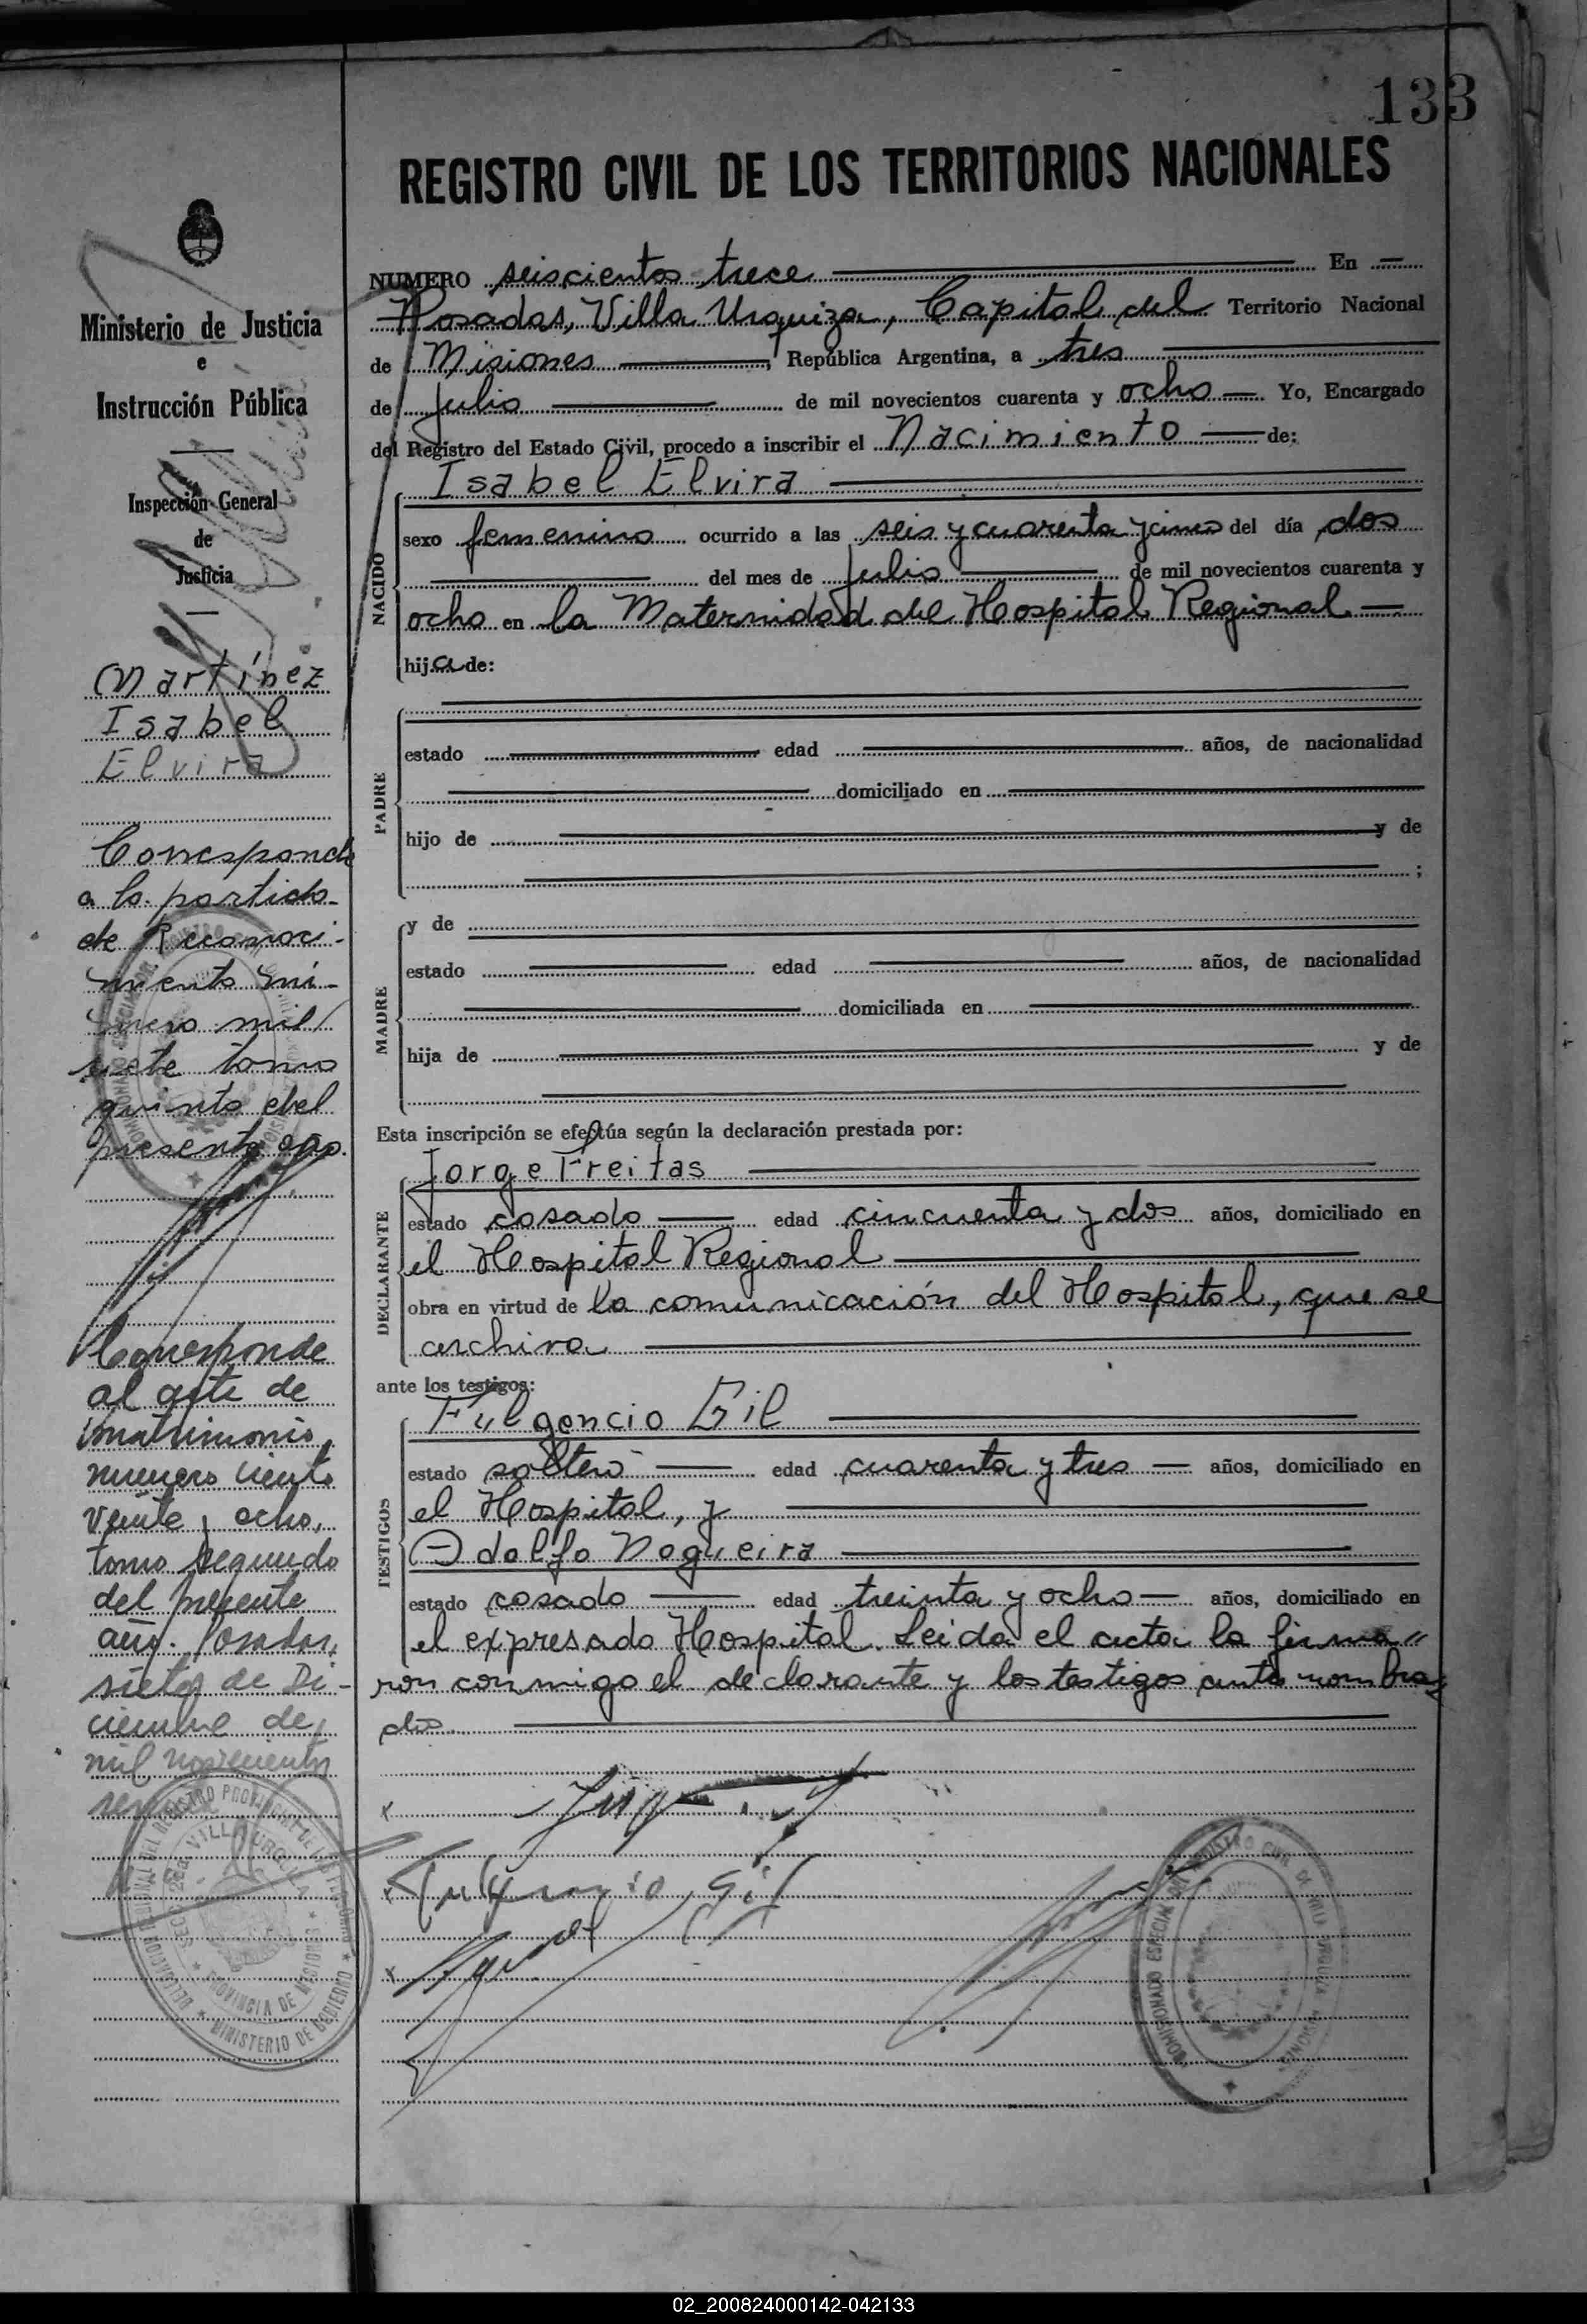 133
REGISTRO CIVIL DE LOS TERRITORIOS NACIONALES
NUMERO seiscientos trece En
Posadas, Villa Urquiza, Capital del Territorio Nacional
de Misiones, República Argentina, a tres
de julio de mil novecientos cuarenta y ocho Yo, Encargado
del Registro del Estado Civil, procedo a inscribir el Nacimiento de:
NACIDO
Isabel Elvira
sexo femenino ocurrido a las seis y cuarenta y cinco del día dos
del mes de julio de mil novecientos cuarenta y
ocho en la Maternidad del Hospital Regional
hija de:
PADRE
estado edad años, de nacionalidad
domiciliado en
hijo de y de
;
MADRE
y de
estado edad años, de nacionalidad
domiciliada en
hija de y de
Esta inscripción se efectúa según la declaración prestada por:
DECLARANTE
Jorge Freitas
estado casado edad cincuenta y dos años, domiciliado en
el Hospital Regional
obra en virtud de la comunicación del Hospital, que se
archiva
ante los testigos:
TESTIGOS
Fulgencio Gil
estado soltero edad cuarenta y tres años, domiciliado en
el Hospital, y
Adolfo Nogueira
estado casado edad treinta y ocho años, domiciliado en
el expresado Hospital. Leida el acta la firma
ron conmigo el declarante y los testigos ante nombra
dos
Fulgencio Gil
Ministerio de Justicia
e
Instrucción Pública
Inspección General
de
Justicia
Martínez
Isabel
Elvira
Corresponde
a la partida
de Reconoci-
miento nú-
mero mil
siete tomo
quinto del
presente año.
Corresponde
al acta de
matrimonio
numero ciento
veinte y ocho,
tomo segundo
del presente
año. Posadas,
siete de Di-
ciembre de
mil novecientos
SECC. 2da. VILLA URQUIZA
PROVINCIA DE MISIONES
MINISTERIO DE GOBIERNO
02_200824000142-042133